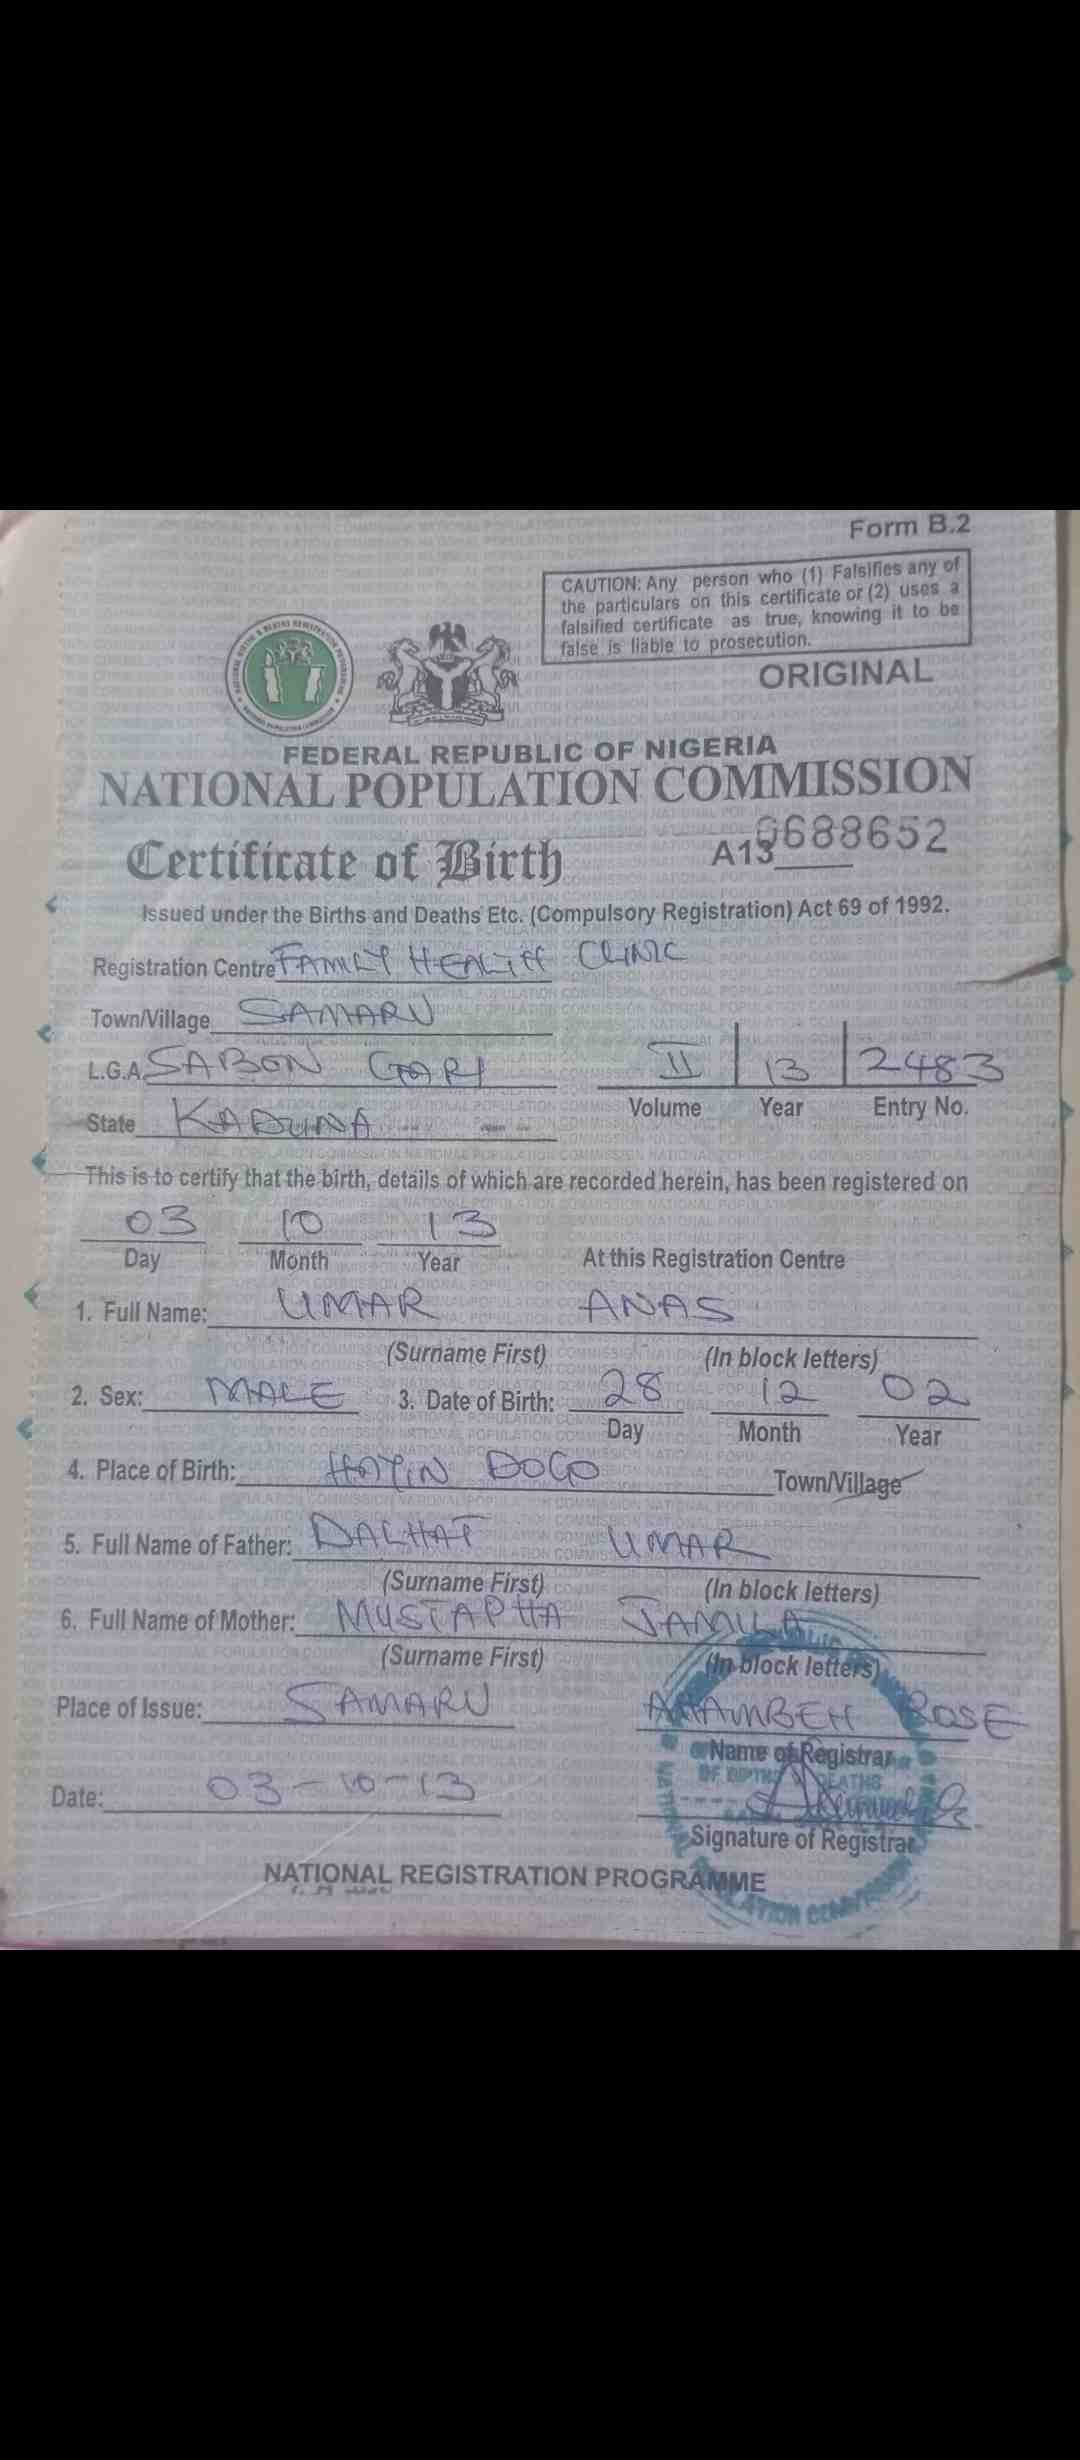 Form B.2
CAUTION: Any person who (1) Falsifies any of
the particulars on this certificate or (2) uses a
falsified certificate as true, knowing it to be
false is liable to prosecution.
ORIGINAL
FEDERAL REPUBLIC OF NIGERIA
NATIONAL POPULATION COMMISSION
Certificate of Birth
A13 0688652
Issued under the Births and Deaths Etc. (Compulsory Registration) Act 69 of 1992.
Registration Centre FAMILY HEALTH CLINIC
Town/Village SAMARU
L.G.A. SABON GARI II 13 2483
Volume Year Entry No.
State KADUNA
This is to certify that the birth, details of which are recorded herein, has been registered on
03 10 13
Day Month Year At this Registration Centre
1. Full Name: UMAR ANAS
(Surname First) (In block letters)
2. Sex: MALE 3. Date of Birth: 28 12 02
Day Month Year
4. Place of Birth: HAYIN DOGO Town/Village
5. Full Name of Father: DALHAT UMAR
(Surname First) (In block letters)
6. Full Name of Mother: MUSTAPHA JAMILA
(Surname First) (In block letters)
Place of Issue: SAMARU ROSE
Name of Registrar
Date: 03-10-13
Signature of Registrar
NATIONAL REGISTRATION PROGRAMME